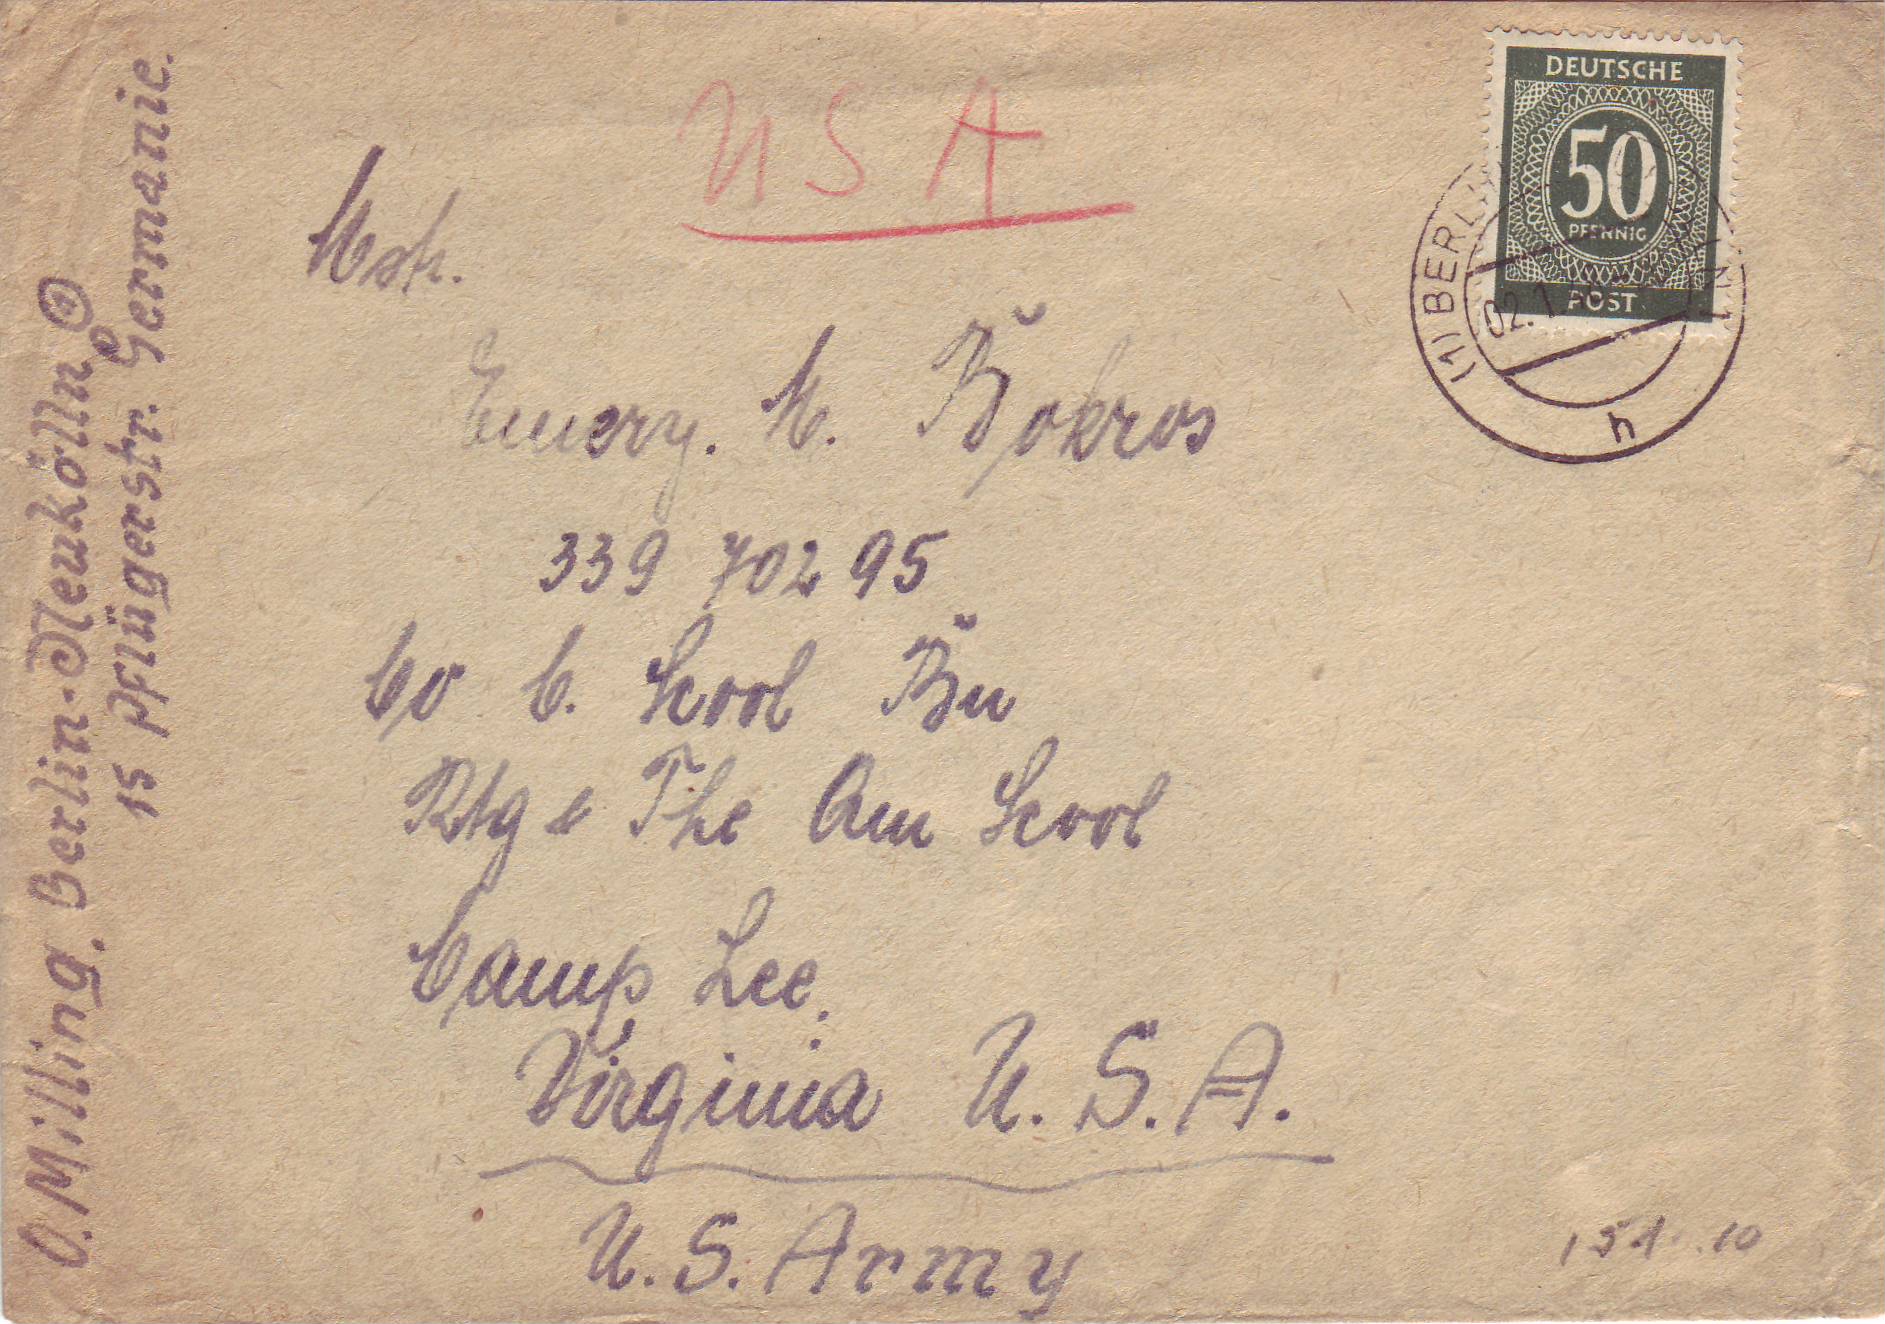 USA
DEUTSCHE
50
PFENNIG
POST
(1) BERLIN
02.1
h
Mstr.
Emery. M. Bokros
339 702 95
Co C. Scool Bn
Rtg & The Am Scool
Camp Lee.
Virginia U.S.A.
U.S. Army
O. Milling. Berlin-Neukölln
15 Pflügerstr. Germanie.